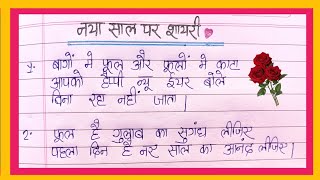 नया साल पर शायरी
1. बागों मे फूल और फूलों मे काटा
आपको हैपी न्यू ईयर बोले
बिना रहा नहीं जाता |
2. फूल है गुलाब का सुगंध लीजिए
पहला दिन है नए साल का आनंद लीजिए |